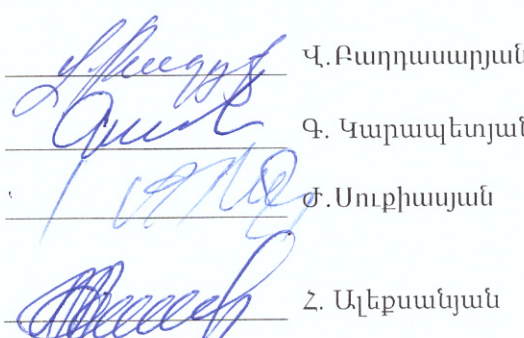 Վ.Բաղդասարյան
Գ. Կարապետյան
Ժ.Սուքիասյան
Զ. Ալեքսանյան